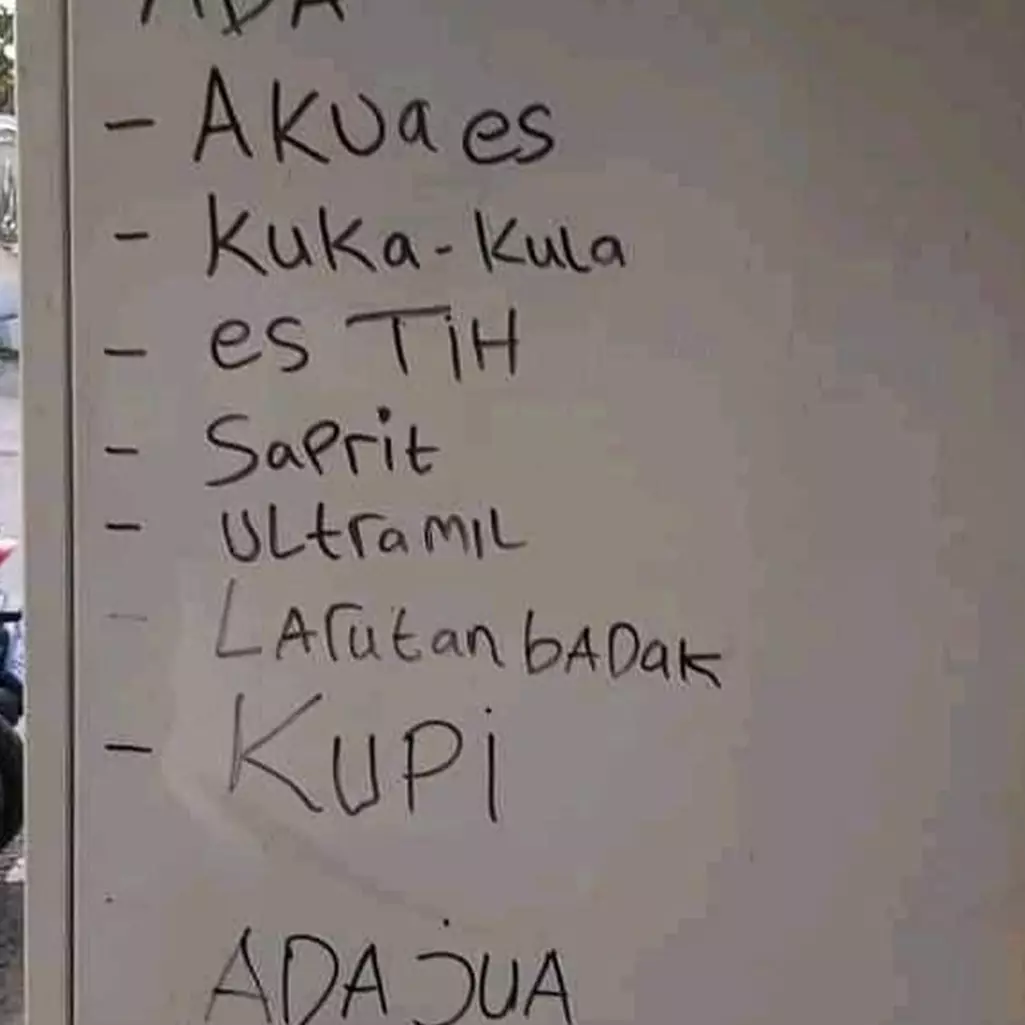 ADA
- AKUa es
- Kuka-kula
- es TiH
- Saprit
- ULtramiL
- LArutan bADak
- KUPi
ADA jUA